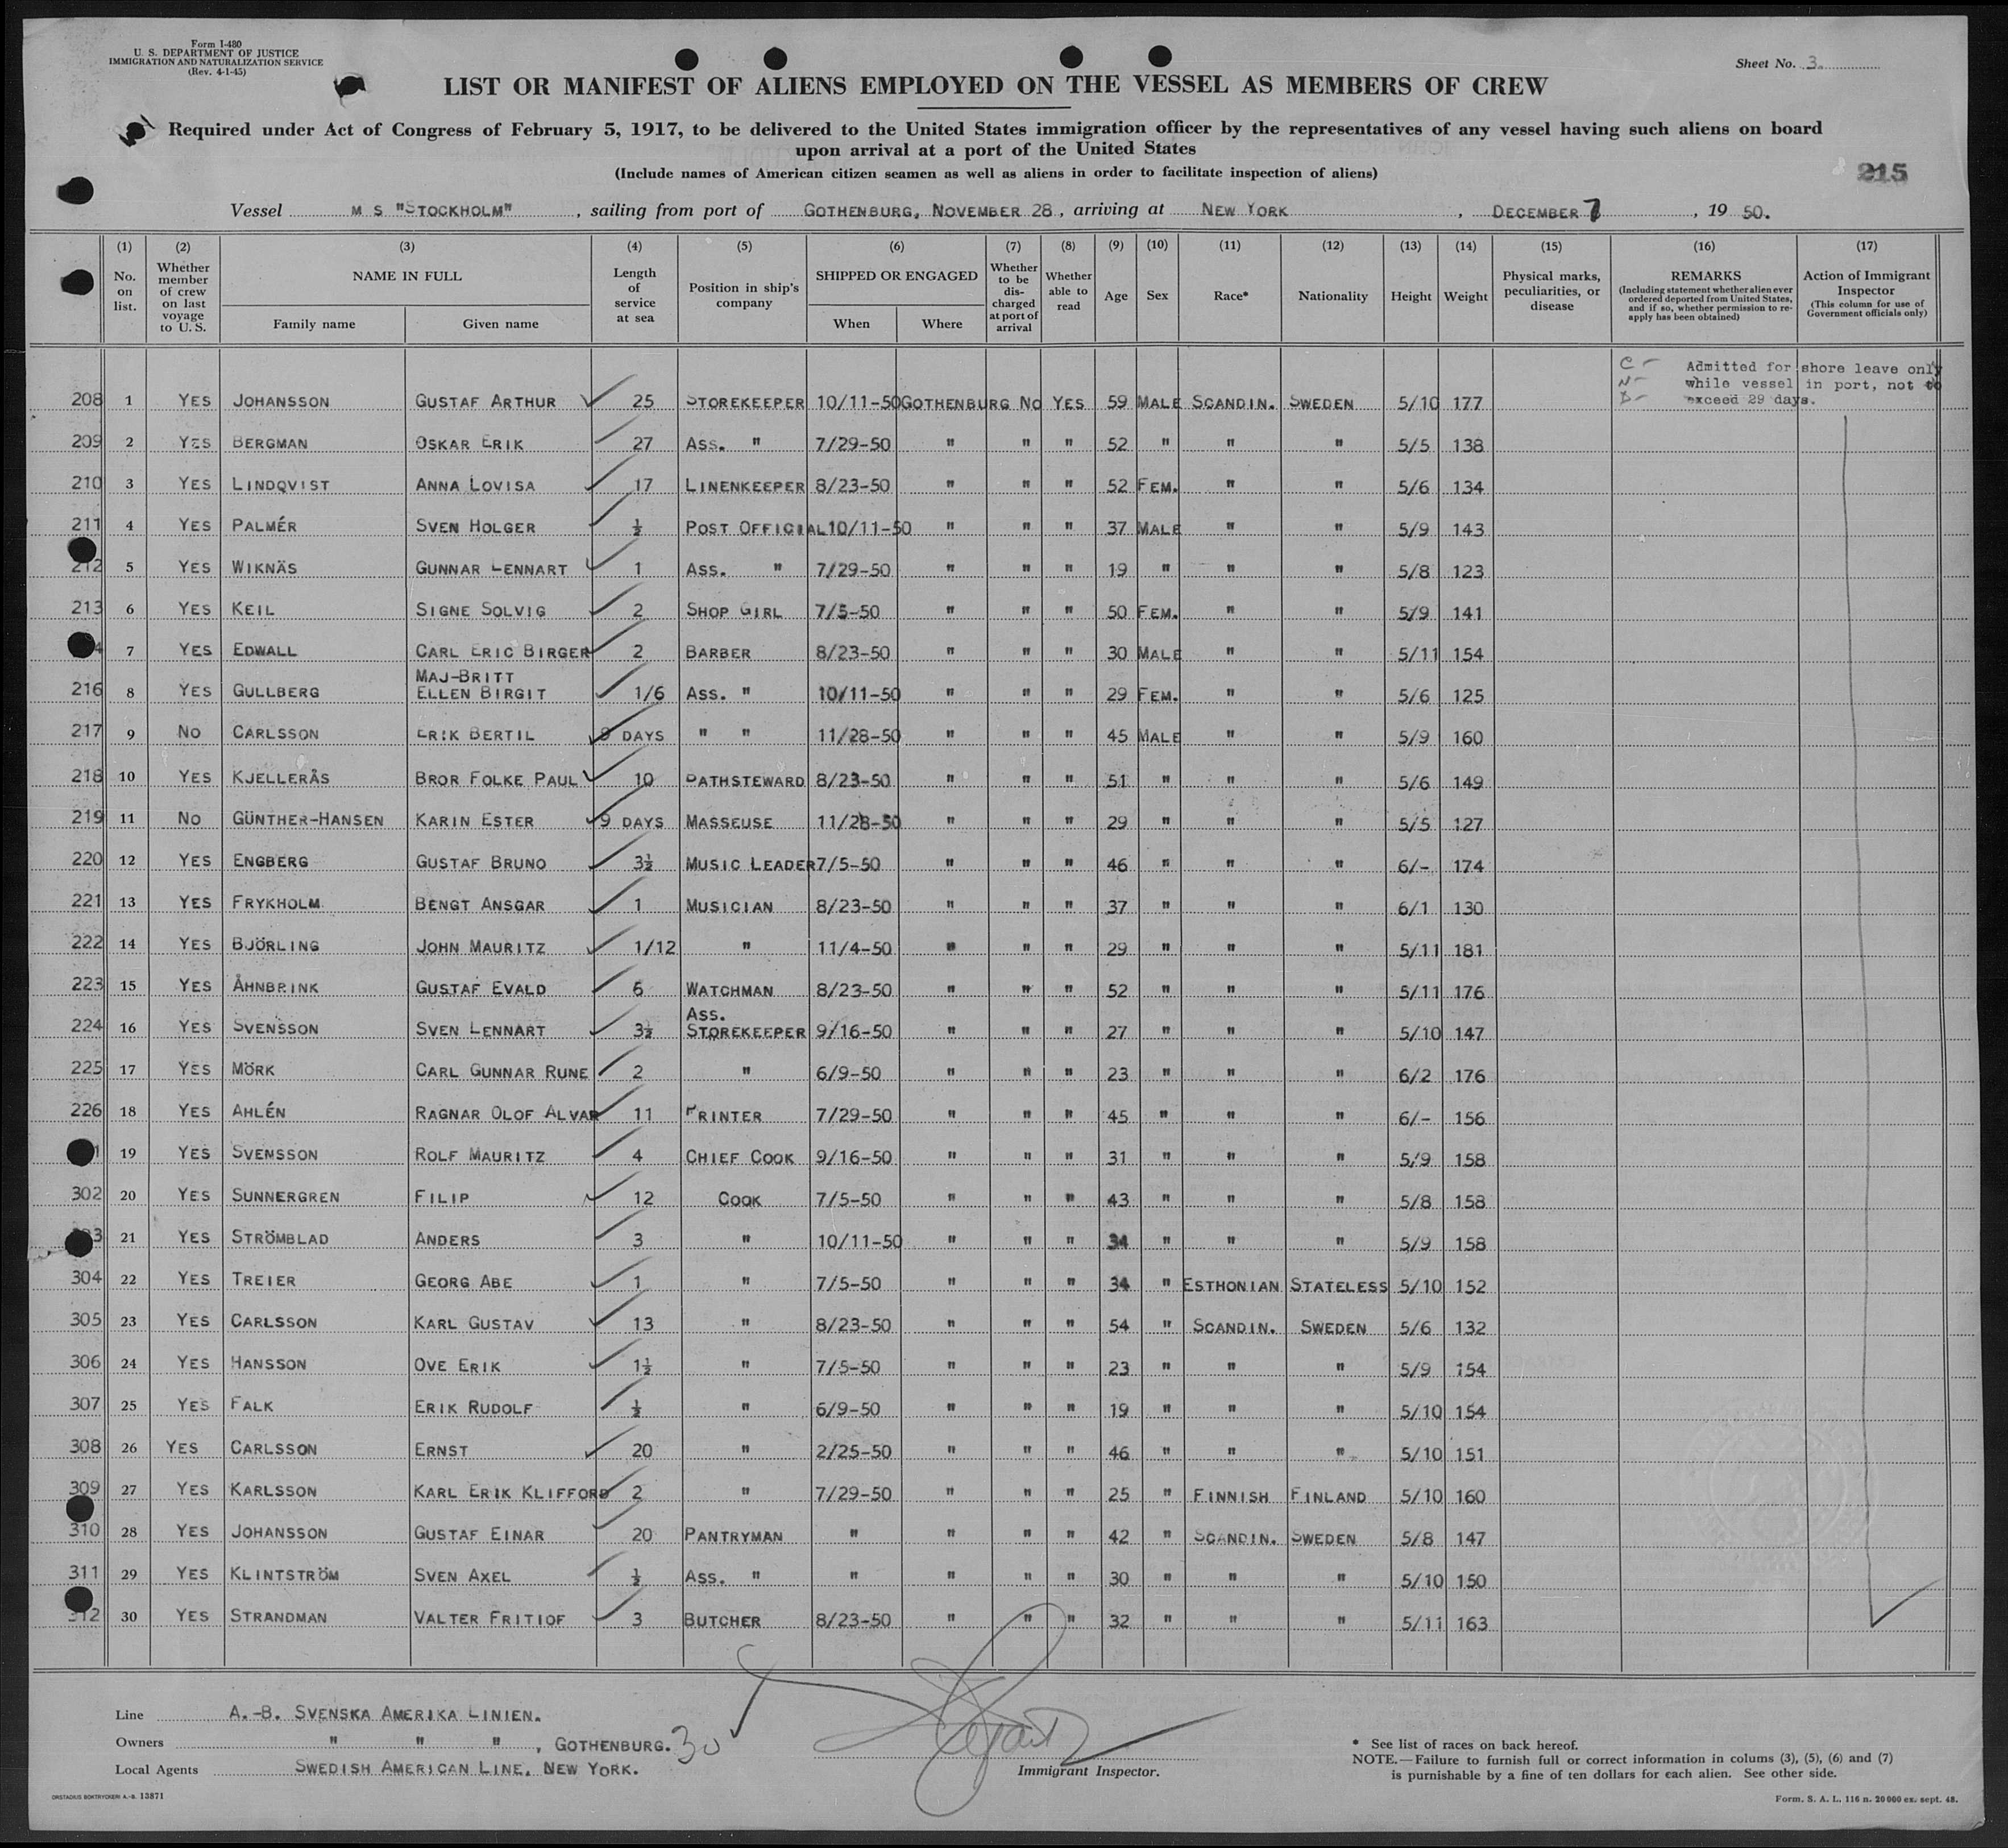 Form I-480
U. S. DEPARTMENT OF JUSTICE
IMMIGRATION AND NATURALIZATION SERVICE
(Rev. 4-1-45)
Sheet No. 3.
LIST OR MANIFEST OF ALIENS EMPLOYED ON THE VESSEL AS MEMBERS OF CREW
Required under Act of Congress of February 5, 1917, to be delivered to the United States immigration officer by the representatives of any vessel having such aliens on board
upon arrival at a port of the United States
(Include names of American citizen seamen as well as aliens in order to facilitate inspection of aliens)
215
Vessel M S "STOCKHOLM", sailing from port of GOTHENBURG, NOVEMBER 28, arriving at NEW YORK, DECEMBER 7, 19 50.
(1) (2) (3) (4) (5) (6) (7) (8) (9) (10) (11) (12) (13) (14) (15) (16) (17)
No. on list.
Whether member of crew on last voyage to U. S.
NAME IN FULL
Family name
Given name
Length of service at sea
Position in ship's company
SHIPPED OR ENGAGED
When
Where
Whether to be discharged at port of arrival
Whether able to read
Age
Sex
Race*
Nationality
Height
Weight
Physical marks, peculiarities, or disease
REMARKS
(Including statement whether alien ever ordered deported from United States, and if so, whether permission to re-apply has been obtained)
Action of Immigrant Inspector
(This column for use of Government officials only)
C- Admitted for shore leave only
N- while vessel in port, not to
D- exceed 29 days.
208 1 YES JOHANSSON GUSTAF ARTHUR 25 STOREKEEPER 10/11-50 GOTHENBURG NO YES 59 MALE SCANDIN. SWEDEN 5/10 177
209 2 YES BERGMAN OSKAR ERIK 27 ASS. " 7/29-50 " " " 52 " " " 5/5 138
210 3 YES LINDQVIST ANNA LOVISA 17 LINENKEEPER 8/23-50 " " " 52 FEM. " " 5/6 134
211 4 YES PALMÉR SVEN HOLGER ½ POST OFFICIAL 10/11-50 " " " 37 MALE " " 5/9 143
212 5 YES WIKNÄS GUNNAR LENNART 1 ASS. " 7/29-50 " " " 19 " " " 5/8 123
213 6 YES KEIL SIGNE SOLVIG 2 SHOP GIRL 7/5-50 " " " 50 FEM. " " 5/9 141
4 7 YES EDWALL CARL ERIC BIRGER 2 BARBER 8/23-50 " " " 30 MALE " " 5/11 154
216 8 YES GULLBERG MAJ-BRITT ELLEN BIRGIT 1/6 ASS. " 10/11-50 " " " 29 FEM. " " 5/6 125
217 9 NO CARLSSON ERIK BERTIL 9 DAYS " " 11/28-50 " " " 45 MALE " " 5/9 160
218 10 YES KJELLERÅS BROR FOLKE PAUL 10 BATHSTEWARD 8/23-50 " " " 51 " " " 5/6 149
219 11 NO GÜNTHER-HANSEN KARIN ESTER 9 DAYS MASSEUSE 11/28-50 " " " 29 " " " 5/5 127
220 12 YES ENGBERG GUSTAF BRUNO 3½ MUSIC LEADER 7/5-50 " " " 46 " " " 6/- 174
221 13 YES FRYKHOLM BENGT ANSGAR 1 MUSICIAN 8/23-50 " " " 37 " " " 6/1 130
222 14 YES BJÖRLING JOHN MAURITZ 1/12 " 11/4-50 " " " 29 " " " 5/11 181
223 15 YES ÅHNBRINK GUSTAF EVALD 6 WATCHMAN 8/23-50 " " " 52 " " " 5/11 176
224 16 YES SVENSSON SVEN LENNART 3½ ASS. STOREKEEPER 9/16-50 " " " 27 " " " 5/10 147
225 17 YES MÖRK CARL GUNNAR RUNE 2 " 6/9-50 " " " 23 " " " 6/2 176
226 18 YES AHLÉN RAGNAR OLOF ALVAR 11 PRINTER 7/29-50 " " " 45 " " " 6/- 156
1 19 YES SVENSSON ROLF MAURITZ 4 CHIEF COOK 9/16-50 " " " 31 " " " 5/9 158
302 20 YES SUNNERGREN FILIP 12 COOK 7/5-50 " " " 43 " " " 5/8 158
3 21 YES STRÖMBLAD ANDERS 3 " 10/11-50 " " " 34 " " " 5/9 158
304 22 YES TREIER GEORG ABE 1 " 7/5-50 " " " 34 " ESTHONIAN STATELESS 5/10 152
305 23 YES CARLSSON KARL GUSTAV 13 " 8/23-50 " " " 54 " SCANDIN. SWEDEN 5/6 132
306 24 YES HANSSON OVE ERIK 1½ " 7/5-50 " " " 23 " " " 5/9 154
307 25 YES FALK ERIK RUDOLF ½ " 6/9-50 " " " 19 " " " 5/10 154
308 26 YES CARLSSON ERNST 20 " 2/25-50 " " " 46 " " " 5/10 151
309 27 YES KARLSSON KARL ERIK KLIFFORD 2 " 7/29-50 " " " 25 " FINNISH FINLAND 5/10 160
310 28 YES JOHANSSON GUSTAF EINAR 20 PANTRYMAN " " " " 42 " SCANDIN. SWEDEN 5/8 147
311 29 YES KLINTSTRÖM SVEN AXEL ½ ASS. " " " " " 30 " " " 5/10 150
312 30 YES STRANDMAN VALTER FRITIOF 3 BUTCHER 8/23-50 " " " 32 " " " 5/11 163
Line A.-B. SVENSKA AMERIKA LINIEN.
Owners " " ", GOTHENBURG. 30
Local Agents SWEDISH AMERICAN LINE, NEW YORK.
Immigrant Inspector.
* See list of races on back hereof.
NOTE.—Failure to furnish full or correct information in colums (3), (5), (6) and (7)
is punishable by a fine of ten dollars for each alien. See other side.
ORSTADIUS BOKTRYCKERI A.-B. 13871
Form. S. A. L. 116 n. 20 000 ex. sept. 48.